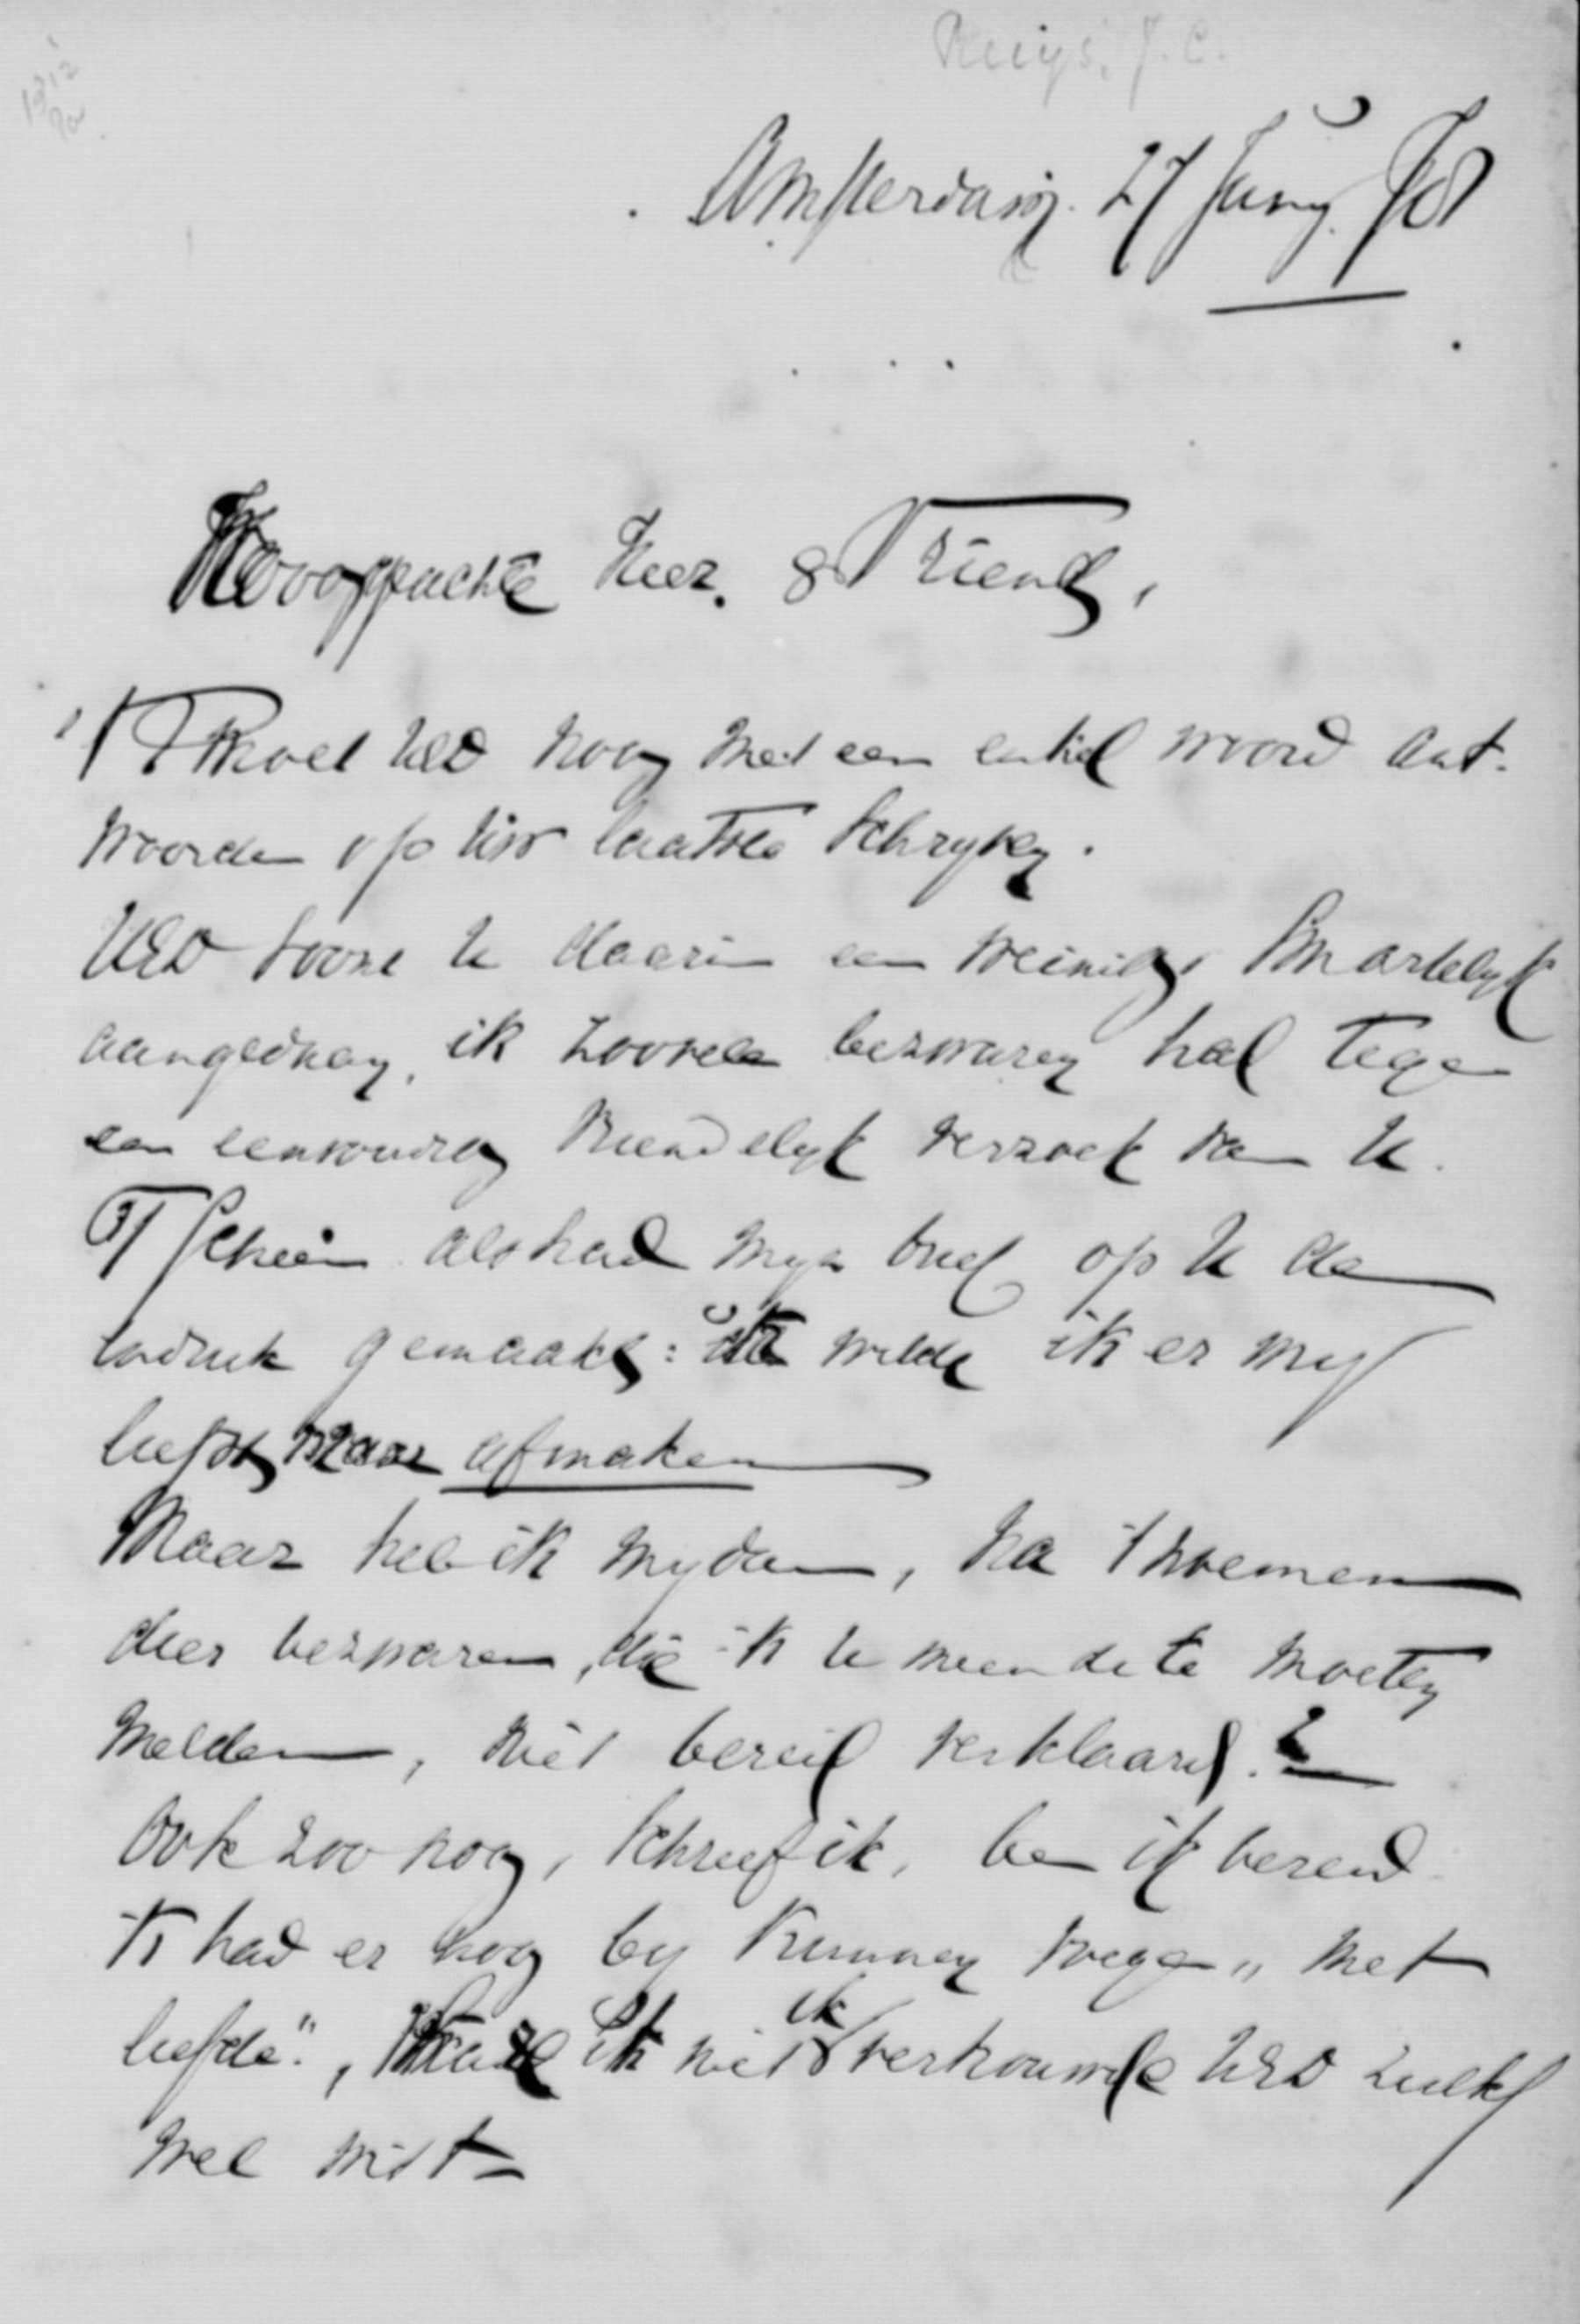 Ruijs, J. C.
Amsterdam. 27 Juny
Hooggeachte Heer & Vriend,
Moet UEd nog met een enkel woord ant-
woorden op Uw laatste schryven.
UEd toont U daarin een weinig smartelyk
aangedaan, ik zoovele bezwaren had tegen
een eenvoudig vriendelyk verzoek van U.
't Scheen als had myn brief op U den
indruk gemaakt: wilde ik er my
liefst maar afmaken
Maar heb ik my dan, na 't noemen
dier bezwaren, die ik U meende te moeten
melden, niet bereid verklaard?
Ook zoo nog, schreef ik, ben ik bereid
Ik had er nog by kunnen voegen „met
liefde", ik niet ik vertrouwde UEd zulks
wel wist